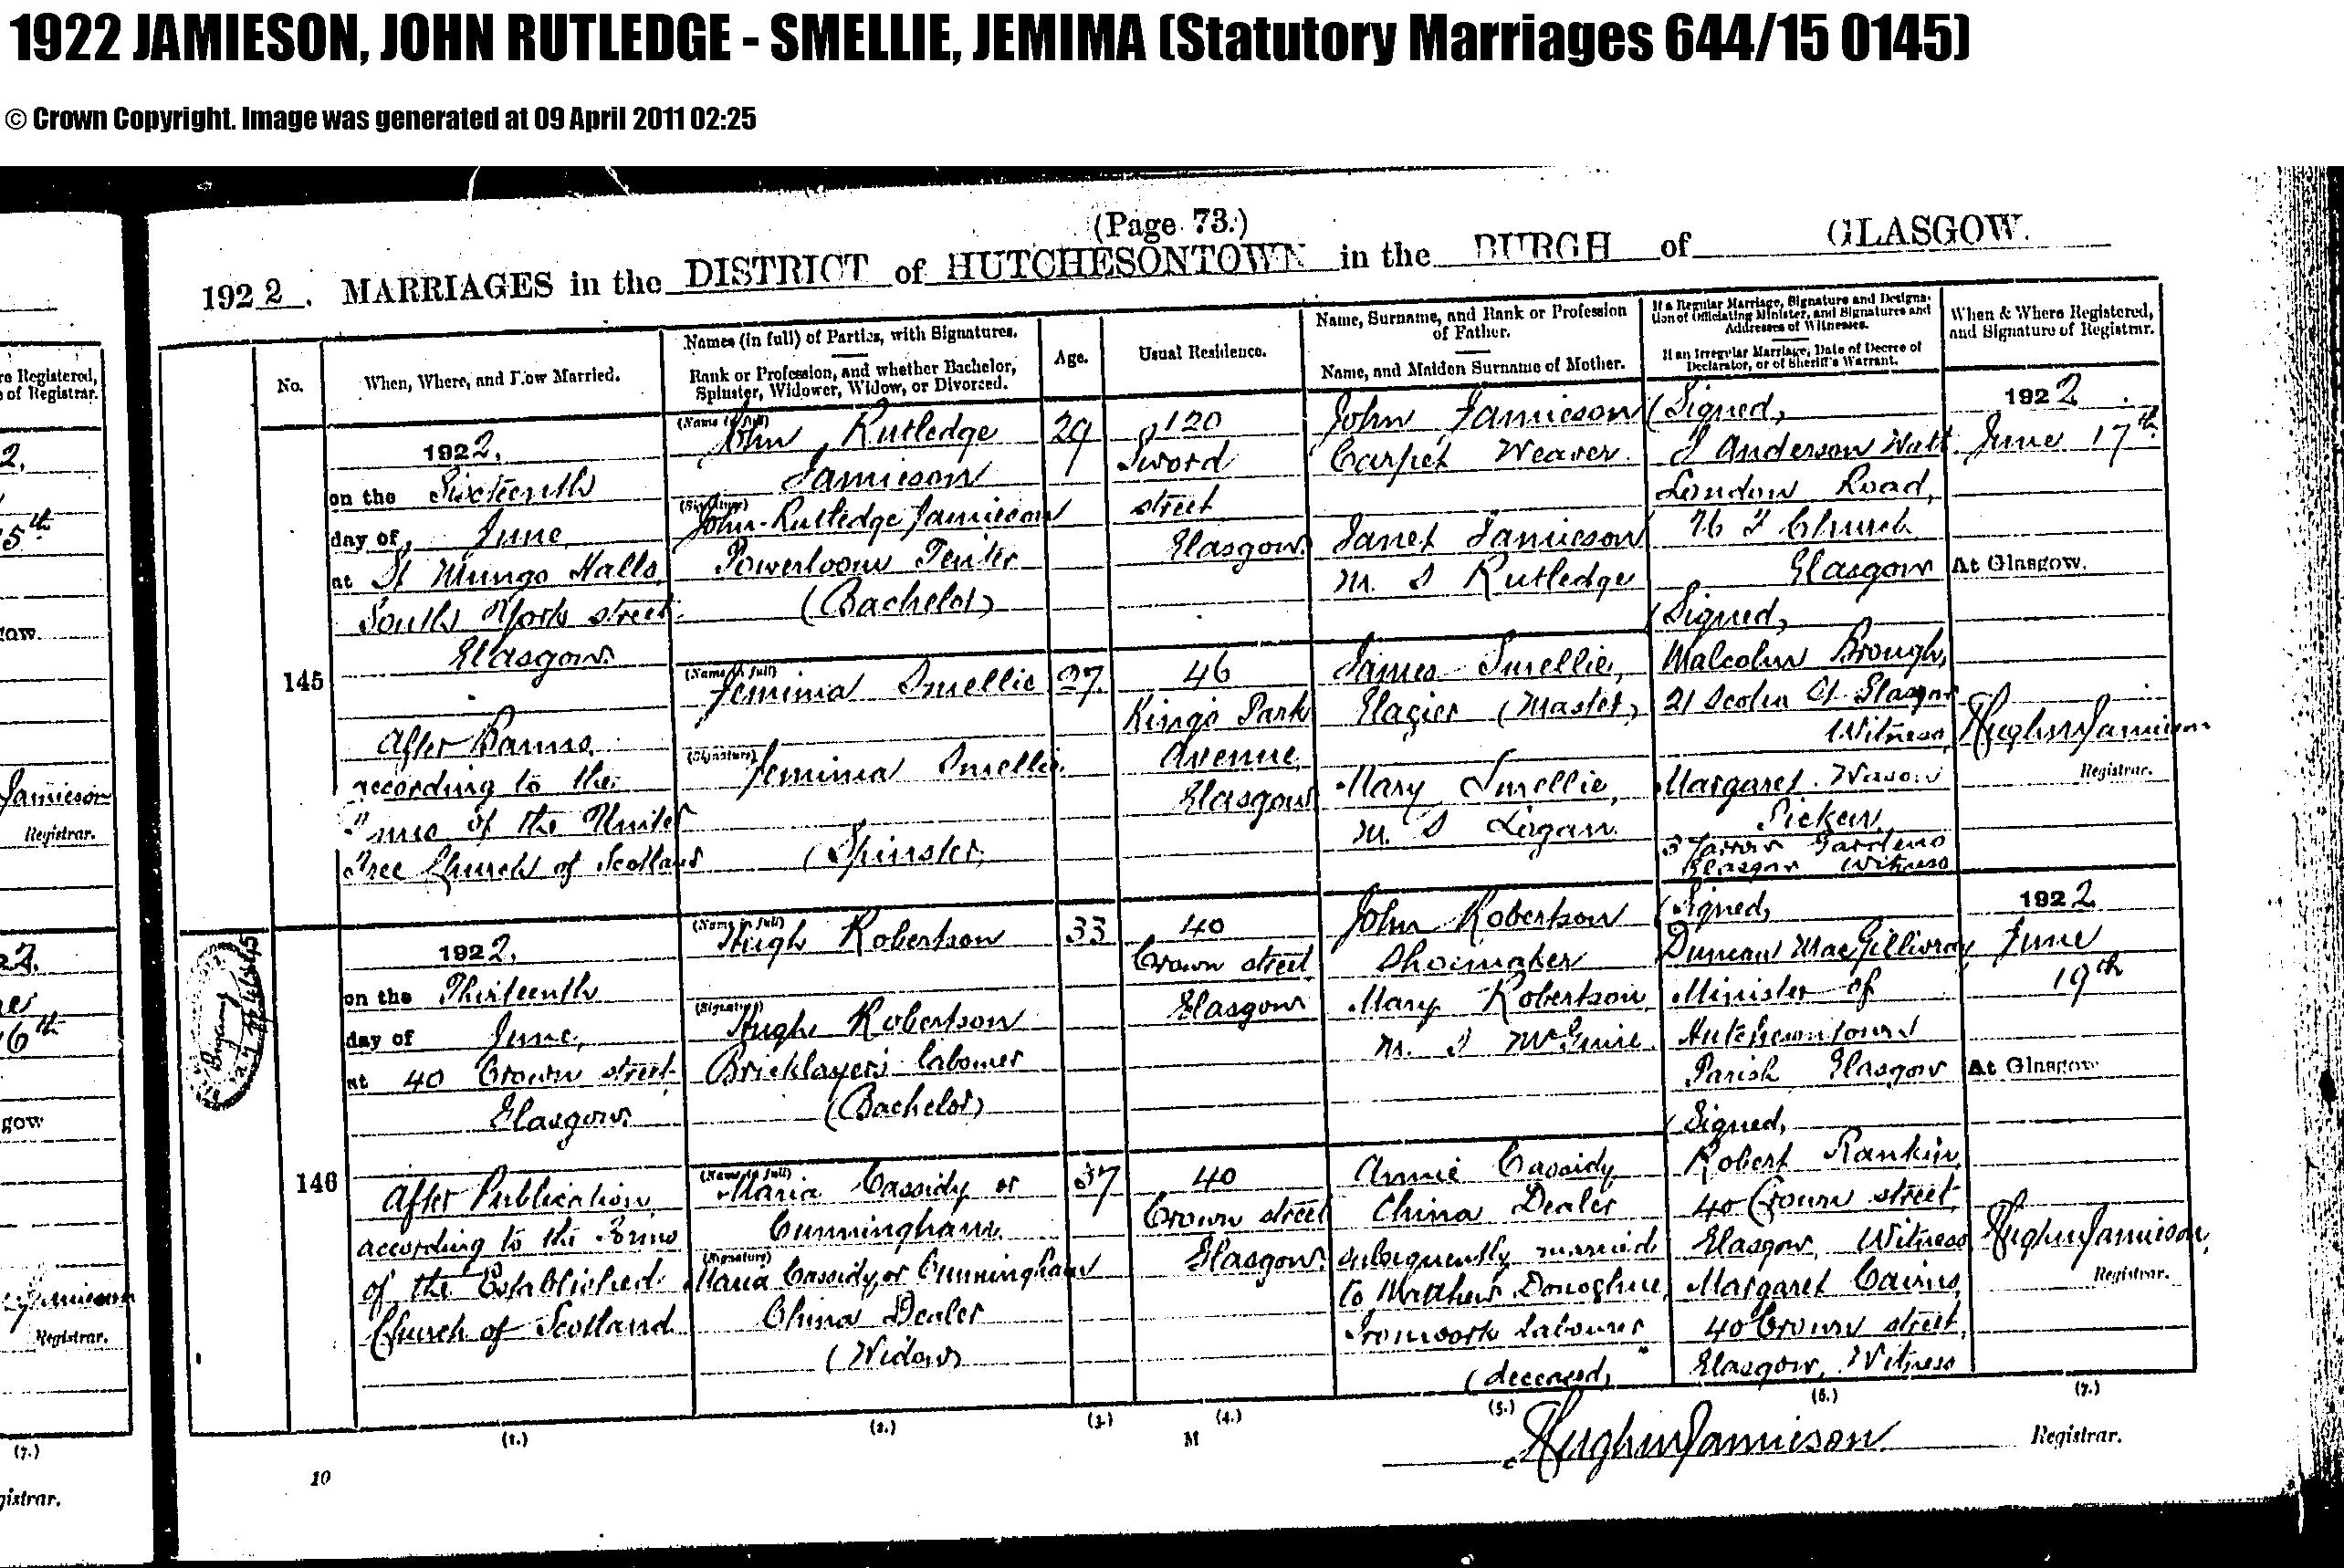 1922 JAMIESON, JOHN RUTLEDGE - SMELLIE, JEMIMA (Statutory Marriages 644/15 0145)
© Crown Copyright. Image was generated at 09 April 2011 02:25
(Page 73.)
1922. MARRIAGES in the DISTRICT of HUTCHESONTOWN in the BURGH of GLASGOW.
No.
When, Where, and How Married.
Names (in full) of Parties, with Signatures.
Rank or Profession, and whether Bachelor,
Spinster, Widower, Widow, or Divorced.
Age.
Usual Residence.
Name, Surname, and Rank or Profession
of Father.
Name, and Maiden Surname of Mother.
If a Regular Marriage, Signature and Designa-
tion of Officiating Minister, and Signatures and
Addresses of Witnesses.
If an Irregular Marriage, Date of Decree of
Declarator, or of Sheriff's Warrant.
When & Where Registered,
and Signature of Registrar.
145
1922.
on the Sixteenth
day of June
at St Mungo Halls
South York street
Glasgow.
After Banns
according to the
Forms of the United
Free Church of Scotland
(Name in full)
John Rutledge
Jamieson
(Signature)
John Rutledge Jamieson
Powerloom Tenter
(Bachelor)
29
120
Sword
street
Glasgow.
John Jamieson
Carpet Weaver.
Janet Jamieson
m. S Rutledge
(Signed,
J Anderson Watt
London Road,
U F Church
Glasgow
1922.
June 17th
At Glasgow.
(Name in full)
Jemima Smellie
(Signature)
Jemima Smellie.
(Spinster)
27.
46
King's Park
Avenue,
Glasgow
James Smellie,
Glazier (Master)
Mary Smellie,
m. S Logan.
(Signed,
Malcolm Brough,
21 St Glasgow
Witness
Margaret
Picken,
3 Yarrow Gardens
Glasgow Witness
Hugh M Jamieson
Registrar.
146
1922.
on the Thirteenth
day of June,
at 40 Crown street
Glasgow.
After Publication
according to the Forms
of the Established
Church of Scotland
(Name in full)
Hugh Robertson
(Signature)
Hugh Robertson
Bricklayer's labourer
(Bachelor)
33
40
Crown street
Glasgow
John Robertson
Shoemaker
Mary Robertson
m. S McGuire
(Signed,
Duncan MacGillivray
Minister of
Hutchesontown
Parish Glasgow
1922
June
19th
At Glasgow
(Name in full)
Maria Cassidy or
Cunningham
(Signature)
Maria Cassidy or Cunningham
China Dealer
(Widow)
37
40
Crown street
Glasgow.
Annie Cassidy
China Dealer
subsequently married
to Matthew Donoghue,
Ironwork labourer
(deceased)
(Signed,
Robert Rankin,
40 Crown street,
Glasgow, Witness
Margaret Cairns,
40 Crown street,
Glasgow, Witness
Hugh M Jamieson,
Registrar.
(1.)
(2.)
(3.)
(4.)
(5.)
(6.)
(7.)
M
Hugh M Jamieson
Registrar.
10
re Registered,
e of Registrar.
2.
5th
gow.
Jamieson
Registrar.
22.
ne
16th
gow
Jamieson
Registrar.
(7.)
gistrar.